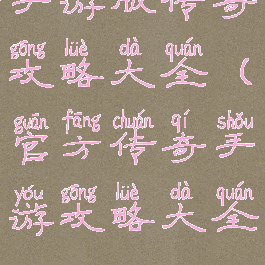 手游版传奇
gōng lüè dà quán
攻略大全(
guān fāng chuán qí shǒu
官方传奇手
yóu gōng lüè dà quán
游攻略大全